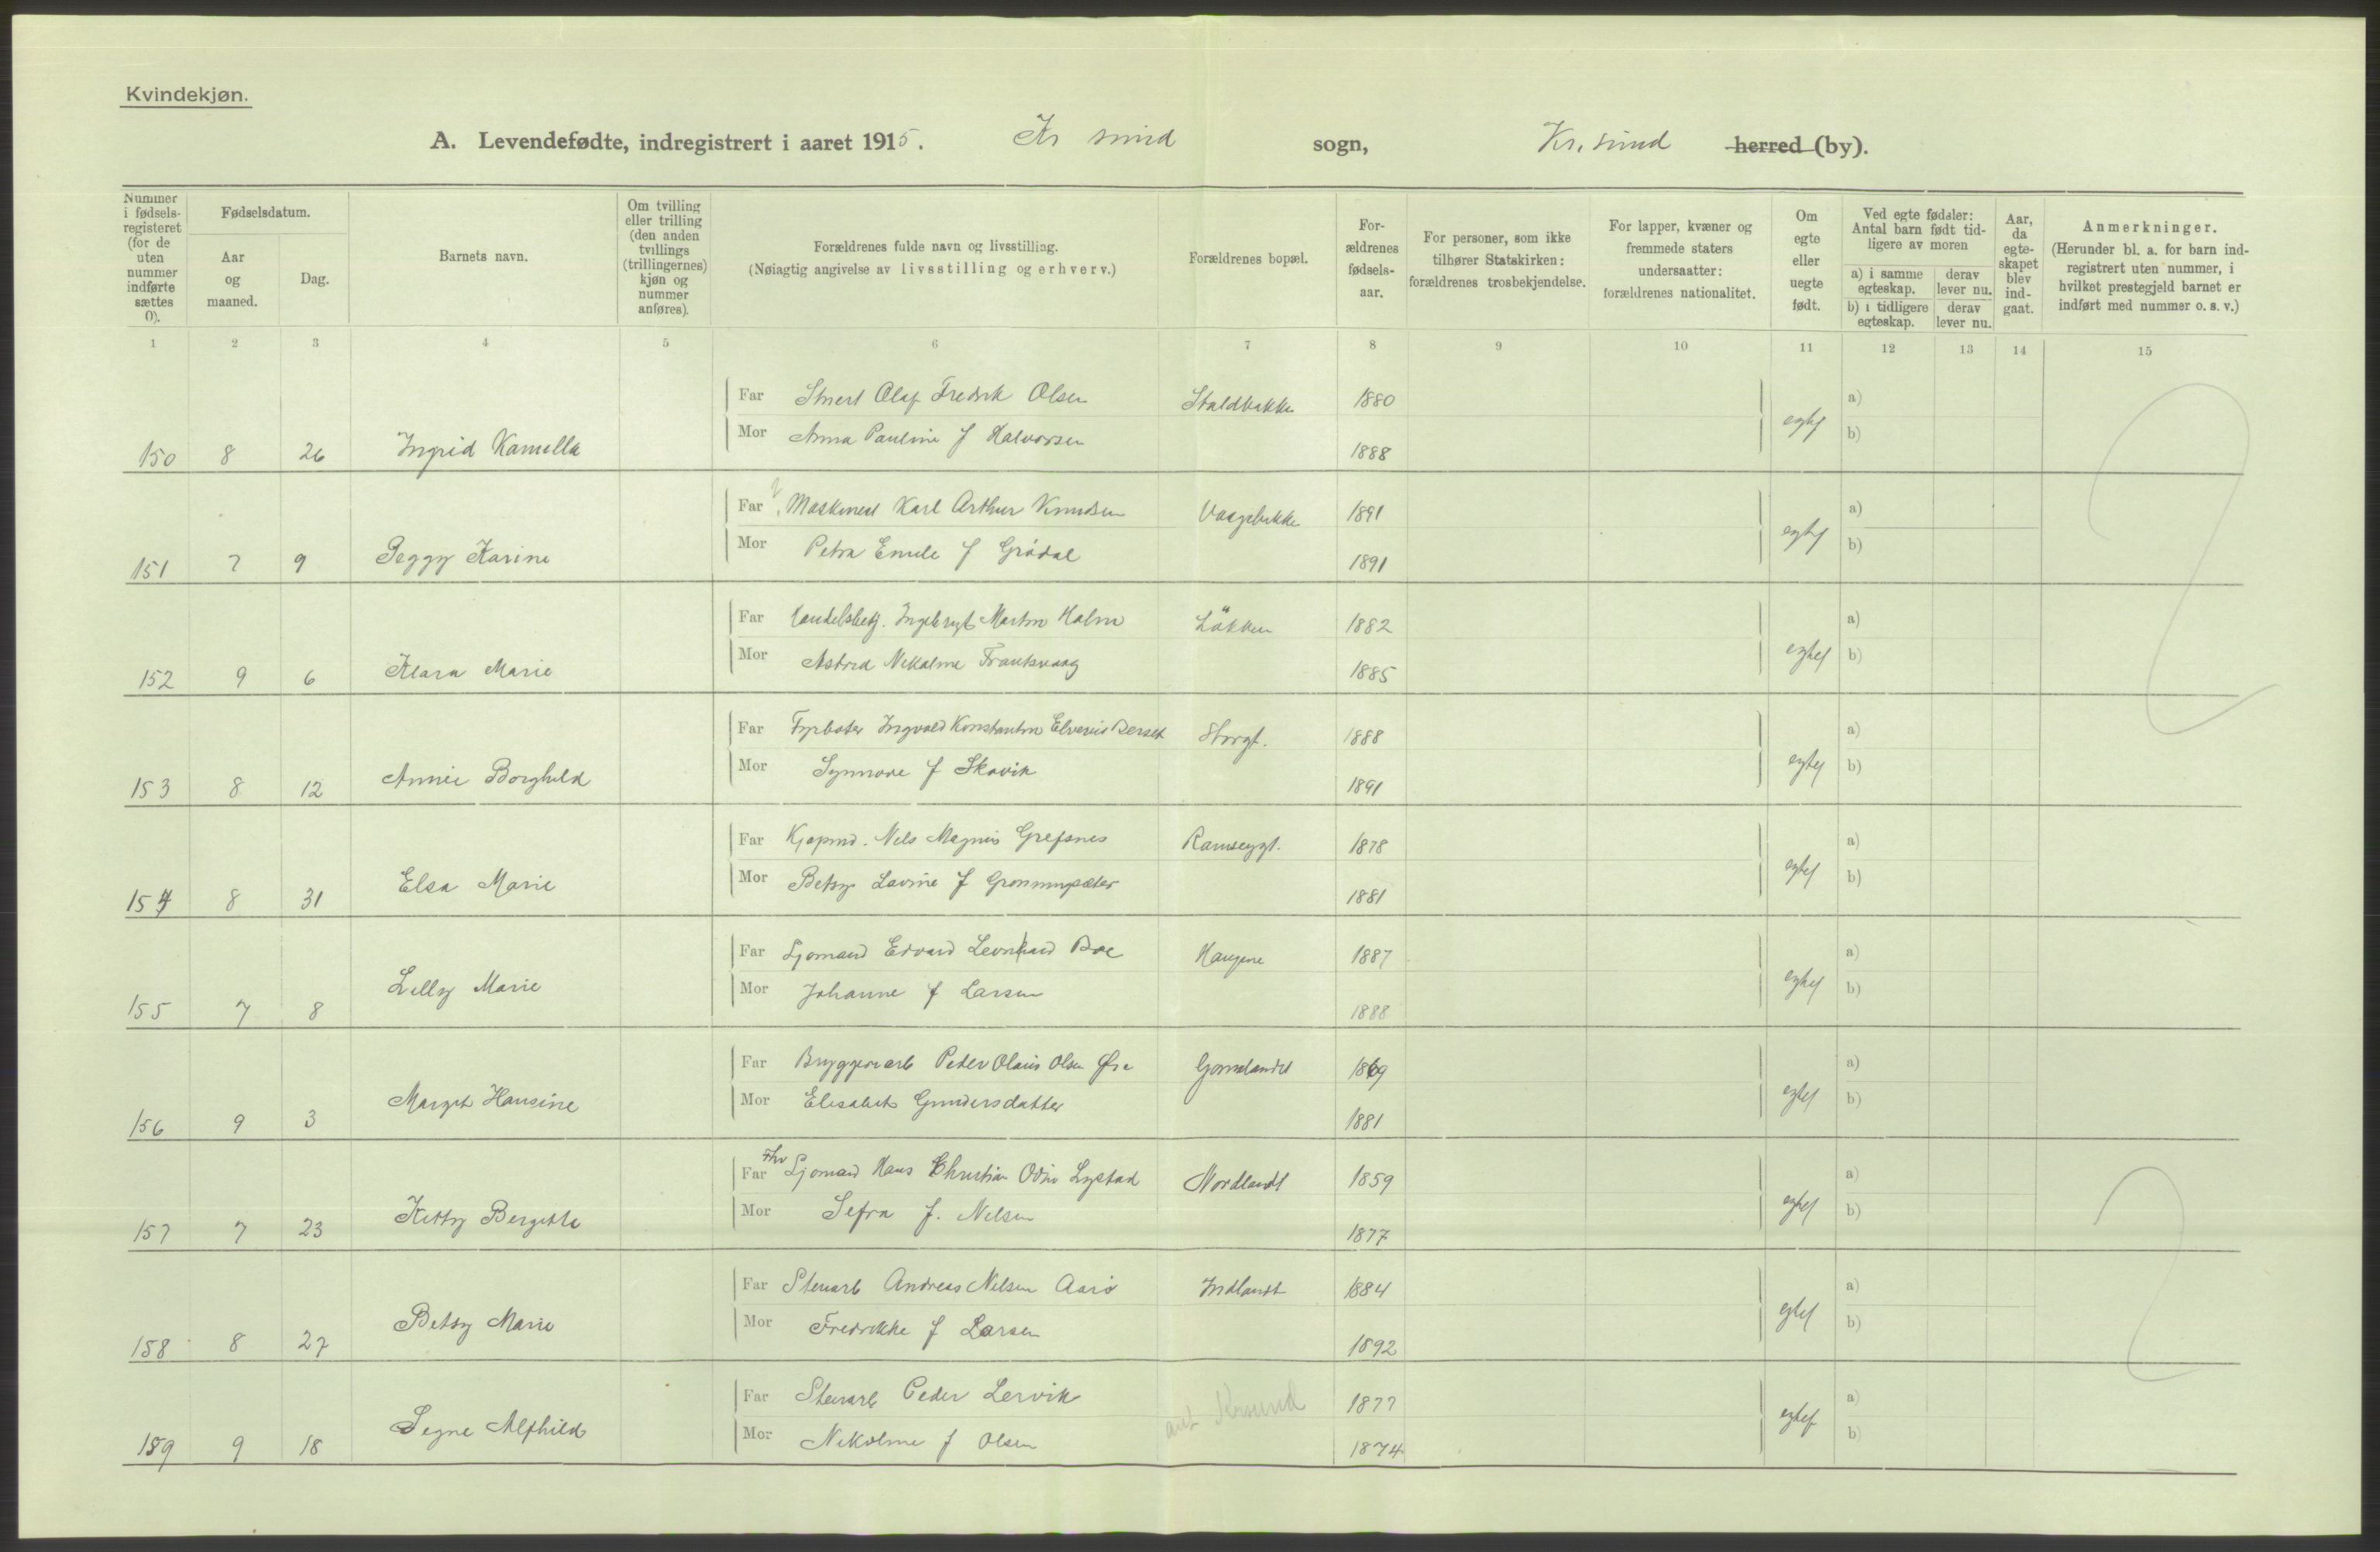 Kvindekjøn.
A. Levendefødte, indregistrert i aaret 1915. Kr sund sogn, Kr. sund herred (by).
Nummer i fødsels-registeret (for de uten nummer indførte sættes 0).
Fødselsdatum.
Aar og maaned.
Dag.
Barnets navn.
Om tvilling eller trilling (den anden tvillings (trillingernes) kjøn og nummer anføres).
Forældrenes fulde navn og livsstilling.
(Nøiagtig angivelse av livsstilling og erhverv.)
Forældrenes bopæl.
For-ældrenes fødsels-aar.
For personer, som ikke tilhører Statskirken: forældrenes trosbekjendelse.
For lapper, kvæner og fremmede staters undersaatter: forældrenes nationalitet.
Om egte eller uegte født.
Ved egte fødsler: Antal barn født tid-ligere av moren
a) i samme egteskap.
derav lever nu.
b) i tidligere egteskap.
derav lever nu.
Aar, da egte-skapet blev ind-gaat.
Anmerkninger.
(Herunder bl. a. for barn ind-registrert uten nummer, i hvilket prestegjeld barnet er indført med nummer o. s. v.)
1 2 3 4 5 6 7 8 9 10 11 12 13 14 15
Far Olaf Fredrik Olsen Staldbakke 1880 a)
Mor Anna Pauline f Halvorsen 1888 egtef b)
150 8 26 Ingrid Kamilla
Far Maskinist Karl Arthur Knudsen 1891 a)
Mor Petra Emile f Grødal 1891 egtef b)
151 7 9 Peggy Karine
Far Handelsbetj. Ingebrigt Martin Holm Løkken 1882 a)
Mor Astrid Nikoline 1885 egtef b)
152 9 6 Klara Marie
Far Fyrbøter Ingvald Konstantin Berset Storgt. 1888 a)
Mor Synnøve f Skavik 1891 egtef b)
153 8 12 Annie Borghild
Far Kjøpmd. Nils Magnus Grefsnes 1878 a)
Mor Betsy Lavine f 1881 egtef b)
154 8 31 Elsa Marie
Far Sjømand Edvard Leonhard Boe Haugene 1887 a)
Mor Johanne f Larsen 1888 egtef b)
155 7 8 Lilly Marie
Far Bryggeriarb Peder Olaus Olsen Øre Gomalandet 1869 a)
Mor Elisabet Gundersdatter 1881 egtef b)
156 9 3 Margit Hansine
Far Fhv Sjømand Hans Christian Odin Lystad Nordlandt 1859 a)
Mor Sefra f. Nilsen 1877 egtef b)
157 7 23 Kitty Bergitte
Far Stenarb Andreas Nilsen Aarø Indlandt 1884 a)
Mor Fredrikke f Larsen 1892 egtef b)
158 8 27 Betsy Marie
Far Stenarb Peder Lervik ant Krsund 1877 a)
Mor Nikoline f Olsen 1874 egtef b)
159 9 18 Signe Alfhild